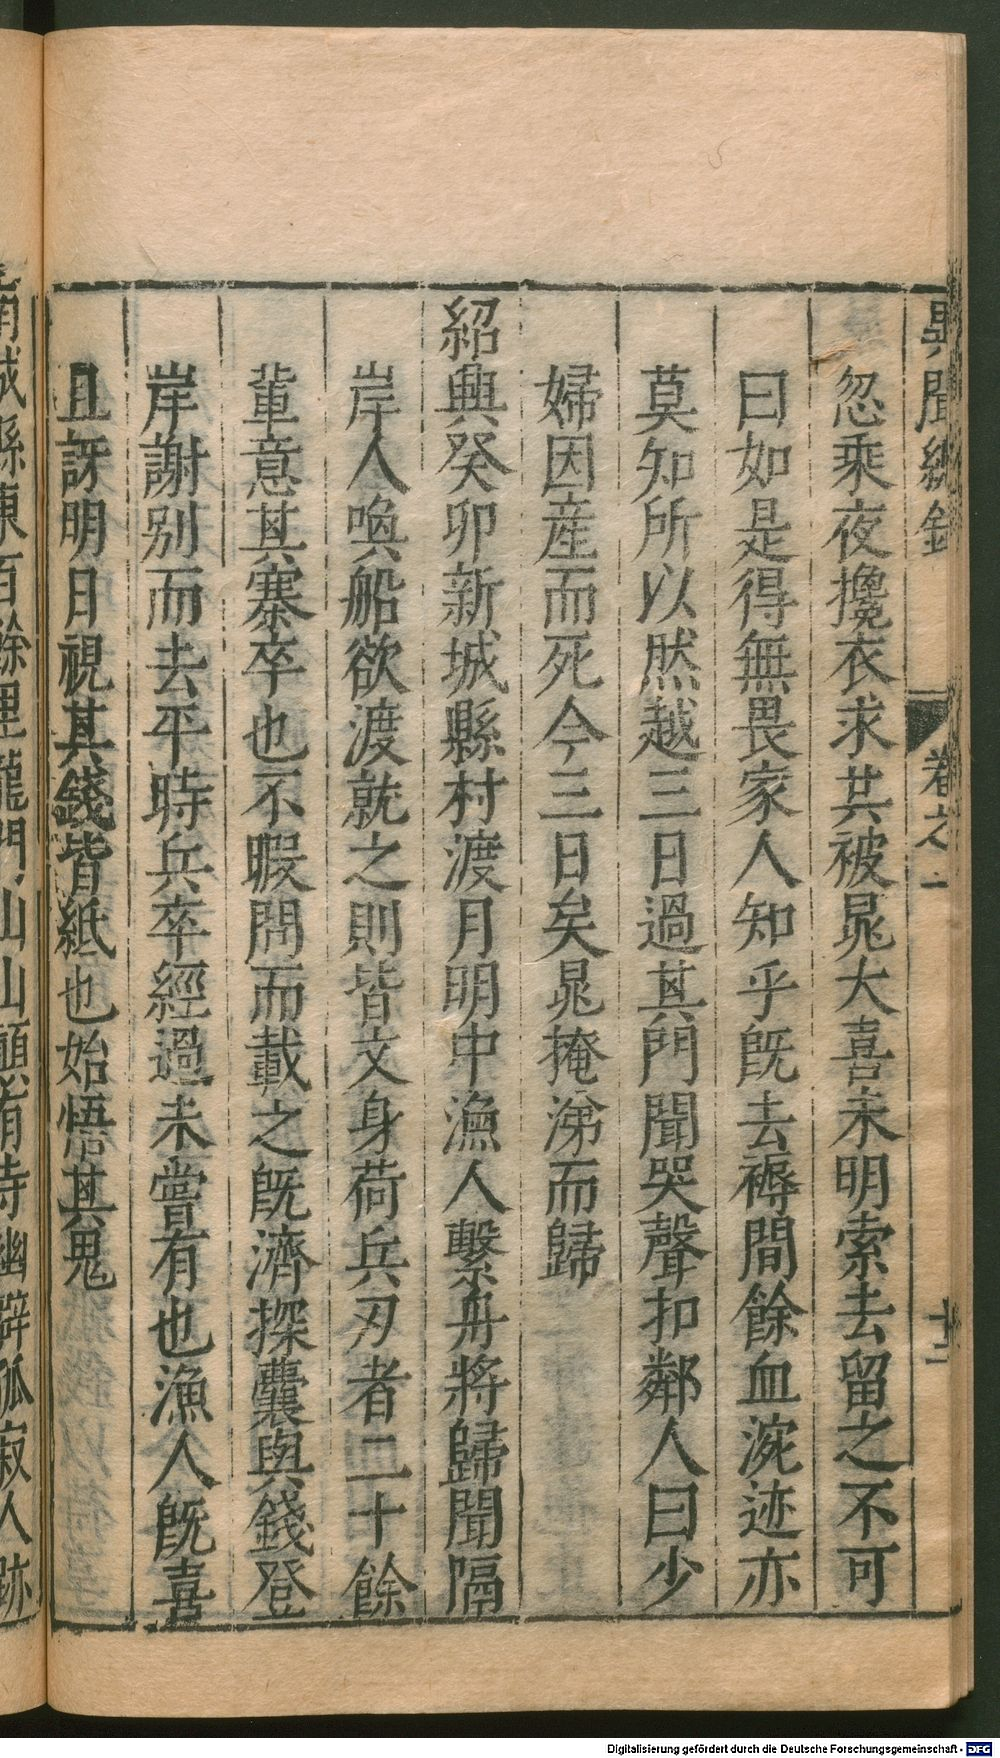 異聞總錄
卷之一
十二
忽乘夜攙衣求共被晁大喜未明索去留之不可
曰如是得無畏家人知乎旣去褥間餘血涴迹亦
莫知所以然越三日過其門聞哭聲扣鄰人曰少
婦因産而死今三日矣晁掩涕而歸
紹興癸卯新城縣村渡月明中漁人繫舟將歸聞隔
岸人喚船欲渡就之則皆文身荷兵刃者二十餘
輩意其寨卒也不暇問而載之旣濟探囊與錢登
岸謝别而去平時兵卒經過未嘗有也漁人旣喜
且訝明日視其錢皆紙也始悟其鬼
南城縣東百餘里龍門山山顛有寺幽僻孤寂人跡
Digitalisierung gefördert durch die Deutsche Forschungsgemeinschaft - DFG